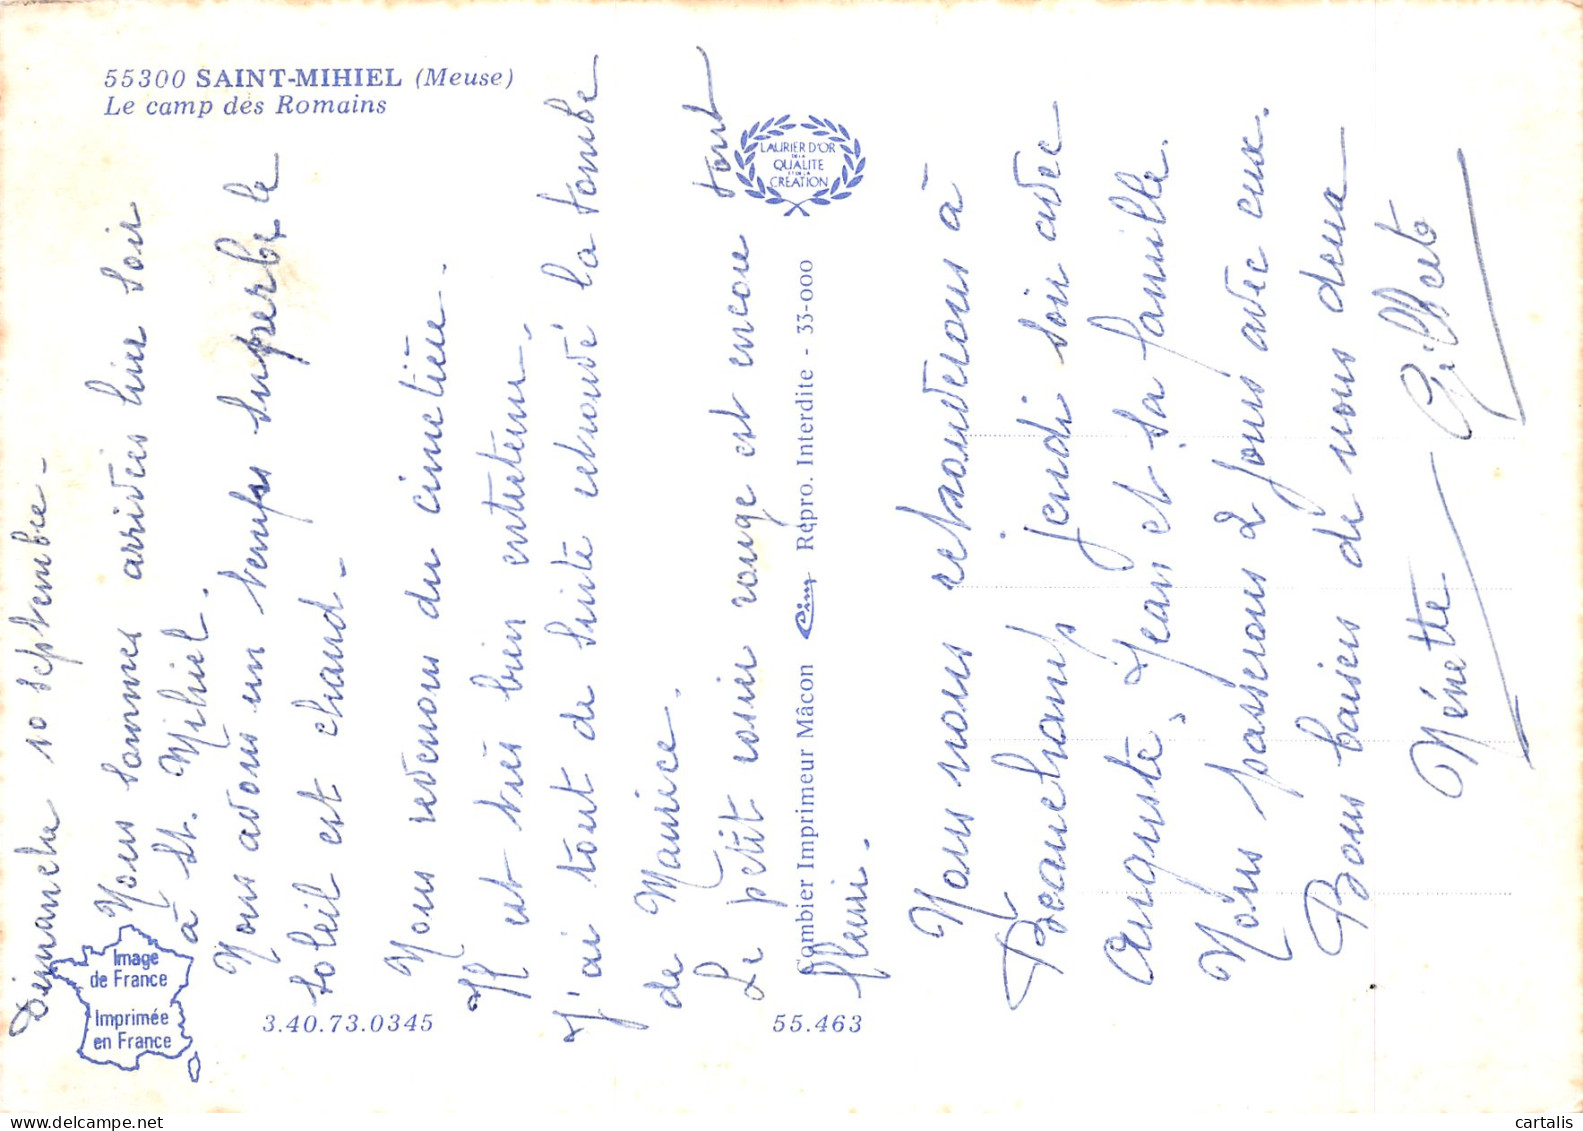 55300 SAINT-MIHIEL (Meuse)
Le camp des Romains
LAURIER D'OR
DE LA
QUALITE
ET DE LA
CRÉATION
Dimanche 10 septembre -
Nous sommes arrivées hier soir
à St. Mihiel.
Nous avons un temps superbe le
soleil est chaud -
Nous revenons du cimetière.
Il est très bien entretenu.
J'ai tout de suite retrouvé la tombe
de Maurice.
Le petit rosier rouge est encore tout
fleuri.
Combier Imprimeur Mâcon Cim Repro. Interdite - 33-000
Nous nous retrouverons à
Beauchamp jeudi soir avec
Auguste, Jean et sa famille.
Nous passerons 2 jours avec eux.
Bons baisers de nous deux
Nénette Gilbert
Image
de France
Imprimée
en France
3.40.73.0345
55.463
cartalis